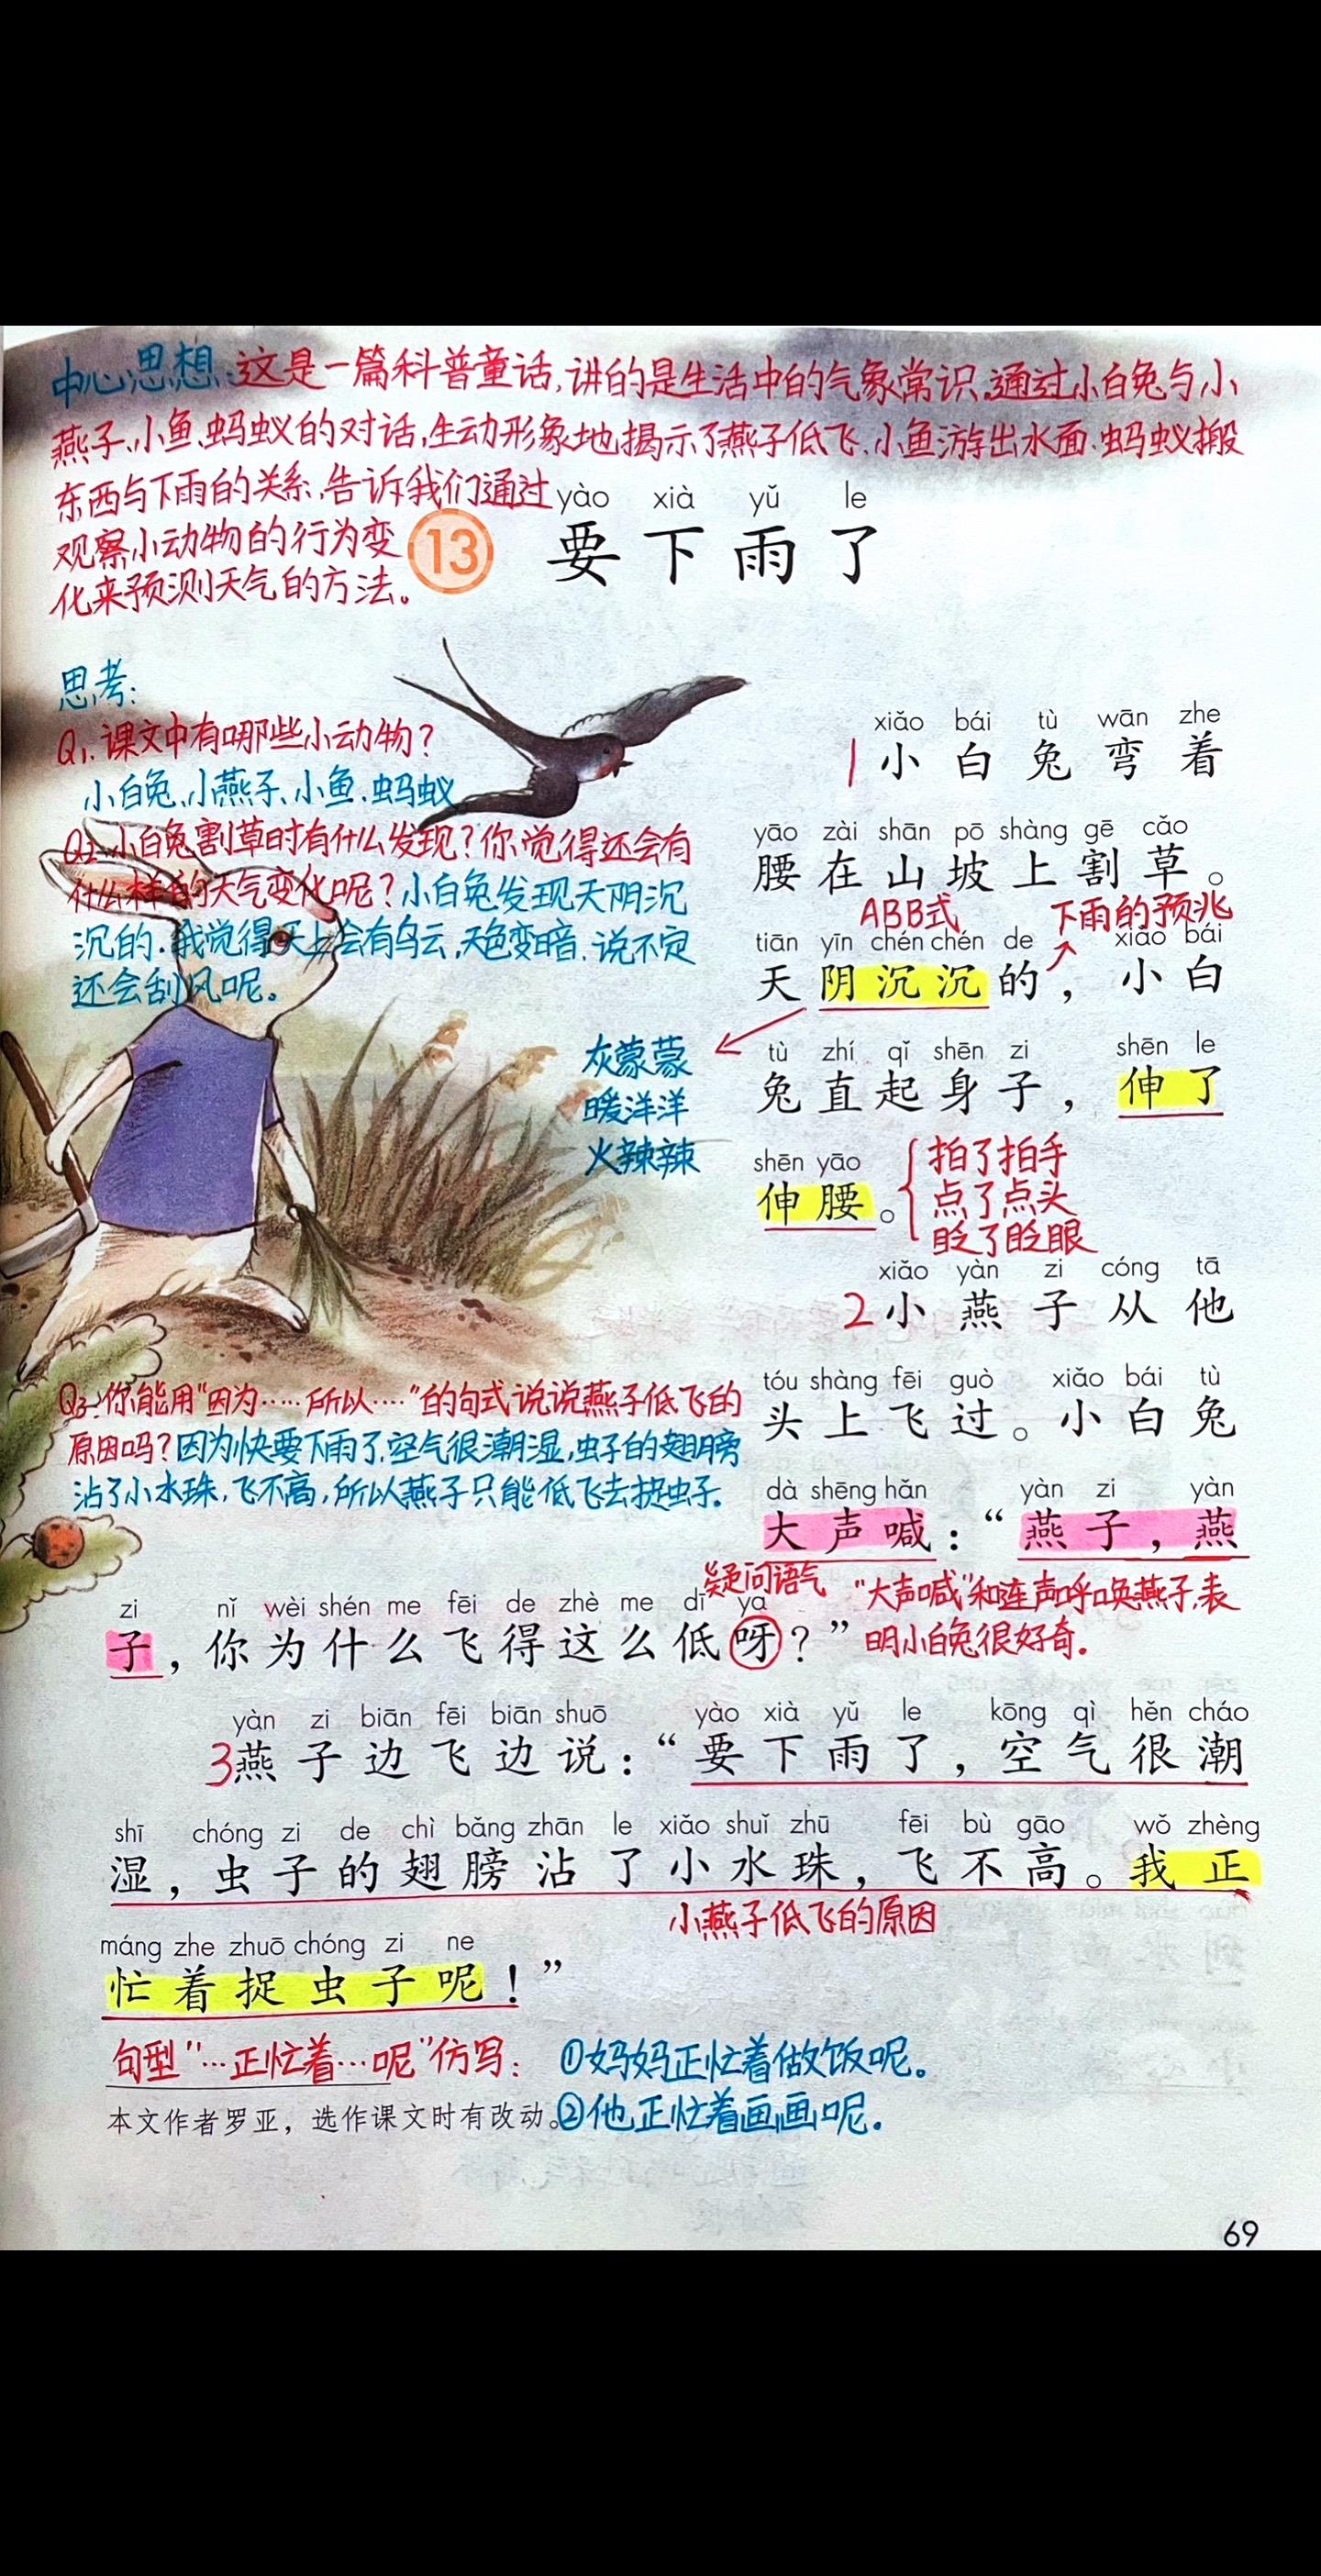 中心思想:这是一篇科普童话,讲的是生活中的气象常识。通过小白兔与小
燕子、小鱼、蚂蚁的对话,生动形象地揭示了燕子低飞、小鱼游出水面、蚂蚁搬
东西与下雨的关系,告诉我们通过
观察小动物的行为变
化来预测天气的方法。
yào xià yǔ le
13 要下雨了
思考:
Q1:课文中有哪些小动物?
小白兔、小燕子、小鱼、蚂蚁
Q2:小白兔割草时有什么发现?你觉得还会有
什么样的天气变化呢?小白兔发现天阴沉
沉的。我觉得天上会有乌云,天色变暗,说不定
还会刮风呢。
xiǎo bái tù wān zhe
1 小白兔弯着
yāo zài shān pō shàng gē cǎo
腰在山坡上割草。
ABB式 下雨的预兆
tiān yīn chén chén de xiǎo bái
天阴沉沉的,小白
灰蒙蒙
暖洋洋
火辣辣
tù zhí qǐ shēn zi shēn le
兔直起身子,伸了
shēn yāo
伸腰。
拍了拍手
点了点头
眨了眨眼
xiǎo yàn zi cóng tā
2 小燕子从他
tóu shàng fēi guò xiǎo bái tù
头上飞过。小白兔
Q3:你能用“因为……所以……”的句式说说燕子低飞的
原因吗?因为快要下雨了,空气很潮湿,虫子的翅膀
沾了小水珠,飞不高,所以燕子只能低飞去捉虫子。
dà shēng hǎn yàn zi yàn
大声喊:“燕子,燕
疑问语气 “大声喊”和连声呼唤燕子,表
明小白兔很好奇。
zi nǐ wèi shén me fēi de zhè me dī ya
子,你为什么飞得这么低呀?”
yàn zi biān fēi biān shuō yào xià yǔ le kōng qì hěn cháo
3 燕子边飞边说:“要下雨了,空气很潮
shī chóng zi de chì bǎng zhān le xiǎo shuǐ zhū fēi bù gāo wǒ zhèng
湿,虫子的翅膀沾了小水珠,飞不高。我正
小燕子低飞的原因
máng zhe zhuō chóng zi ne
忙着捉虫子呢!”
句型“…正忙着…呢”仿写: ①妈妈正忙着做饭呢。
②他正忙着画画呢。
本文作者罗亚,选作课文时有改动。
69